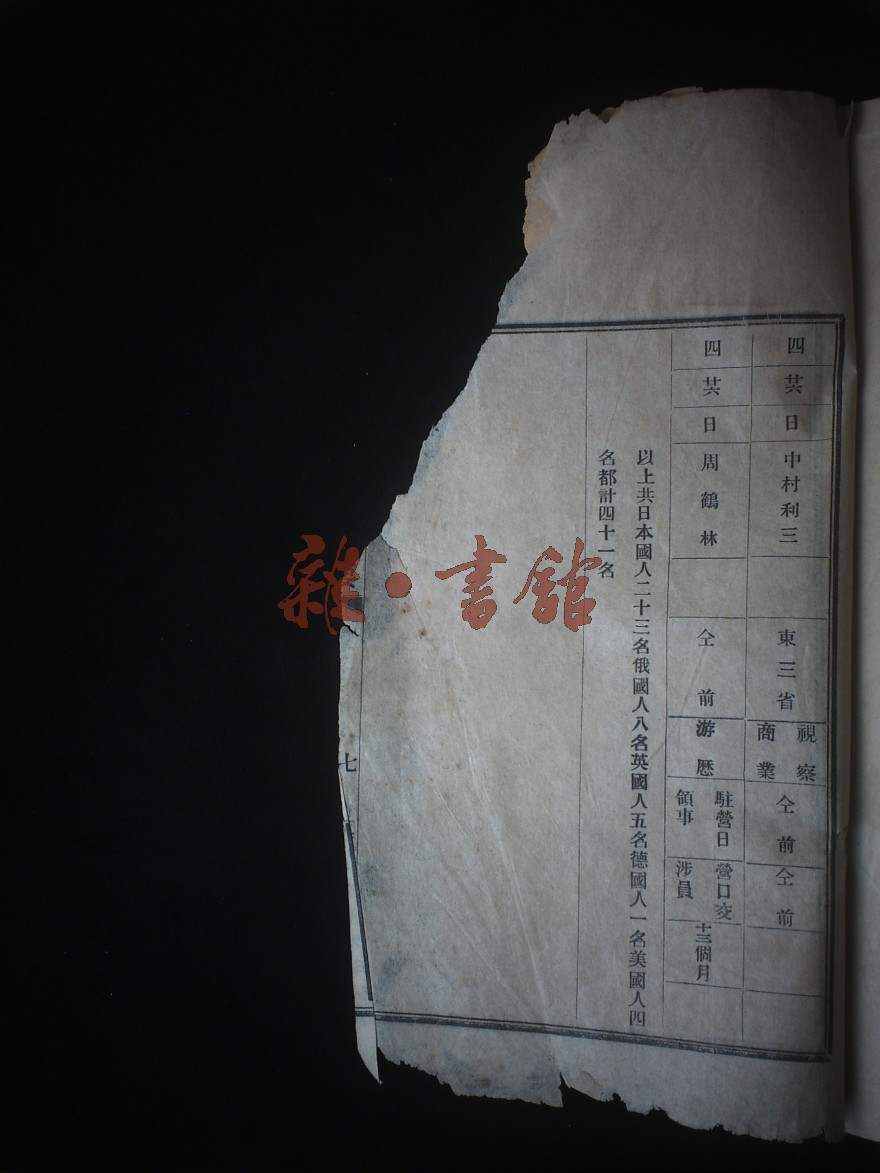 四 廿六 日 中村利三 東三省 視察商業 仝前 仝前
四 廿六 日 周鶴林 仝前 游歷 駐營日領事 營口交涉員 十三個月
以上共日本國人二十三名俄國人八名英國人五名德國人一名美國人四
名都計四十一名
七
雜·書館